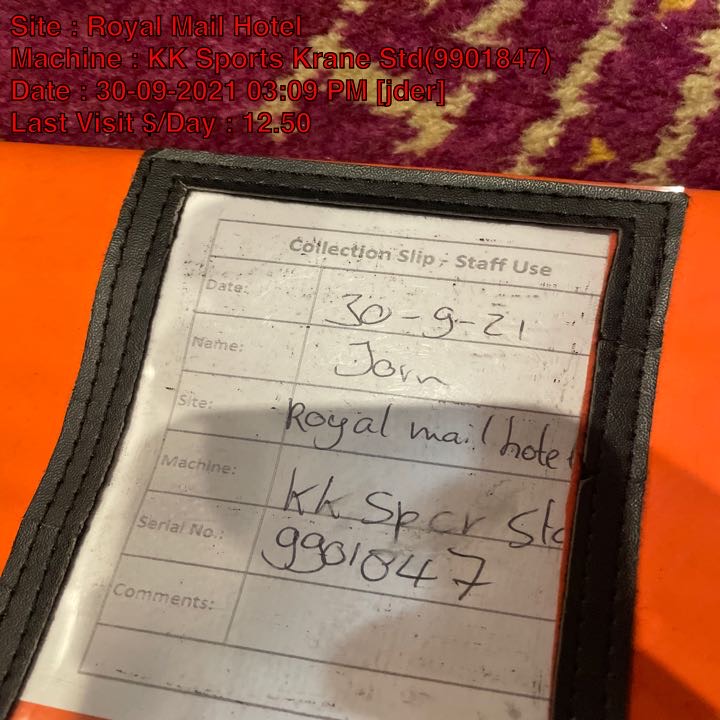 Site : Royal Mail Hotel
Machine : KK Sports Krane Std(9901847)
Date : 30-09-2021 03:09 PM [jder]
Last Visit $/Day : 12.50
Collection Slip - Staff Use
Date: 30-9-21
Name: Jorn
Site: Royal mail hotel
Machine: KK Spcr Std
Serial No.: 9901847
Comments: